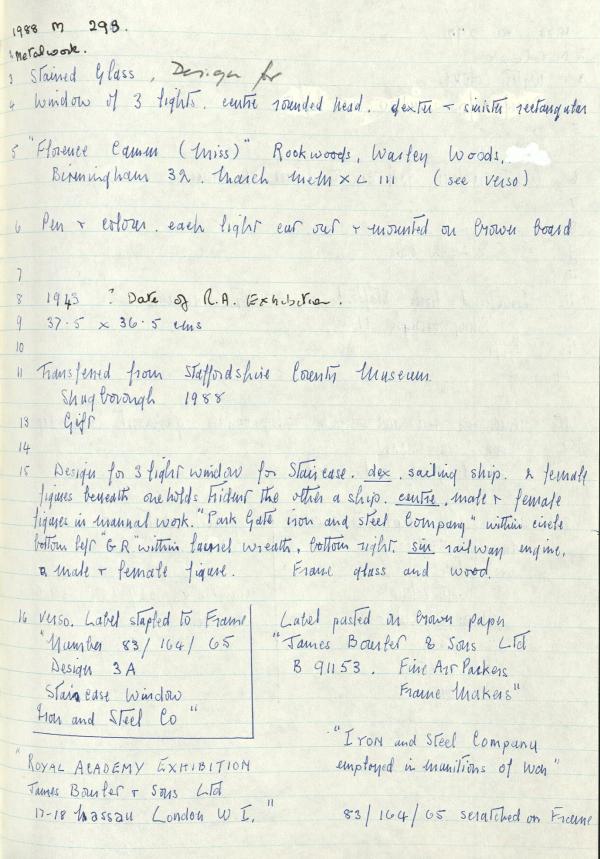 1988 M 298.
2 Metalwork.
3 Stained Glass, Design for
4 Window of 3 lights. centre rounded head. dexter + sinister rectangular
5 "Florence Camm (Miss)" Rookwoods, Warley Woods,
Birmingham 32. March MCM X L III (see verso)
6 Pen + colour. each light cut out + mounted on brown board
7
8 1943 ? Date of R.A. Exhibition.
9 37.5 x 36.5 cms
10
11 Transferred from Staffordshire County Museum
Shugborough 1988
13 Gift
14
15 Design for 3 light window for Staircase. dex. sailing ship. 2 female
figures beneath one holds trident the other a ship. centre. male + female
figures in manual work. "Park Gate iron and steel Company" within circle
bottom left "G R" within laurel wreath, bottom right. sin railway engine,
a male + female figure. Frame glass and wood.
16 verso. Label stapled to Frame
"Number 83/164/65
Design 3A
Staircase Window
Iron and Steel Co"
Label pasted on brown paper
"James Bourlet & Sons Ltd
B 91153. Fine Art Packers
Frame Makers"
"Iron and Steel Company
employed in munitions of War"
"ROYAL ACADEMY EXHIBITION
James Bourlet + Sons Ltd
17-18 Nassau London W I."
83/164/65 scratched on Frame